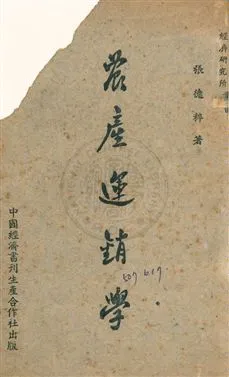 經濟研究所
張德粹著
農產運銷學
中國經濟書刊生產合作社出版